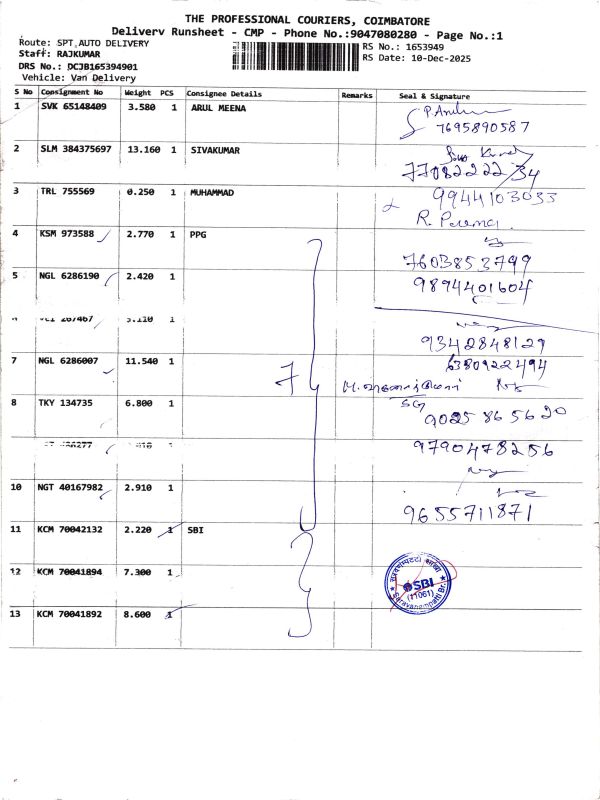 THE PROFESSIONAL COURIERS, COIMBATORE
Delivery Runsheet - CMP - Phone No.:9047080280 - Page No.:1
Route: SPT AUTO DELIVERY
RS No.: 1653949
Staff: RAJKUMAR
RS Date: 10-Dec-2025
DRS No.: DCJB165394901
Vehicle: Van Delivery
S No Consignment No Weight PCS Consignee Details Remarks Seal & Signature
1 SVK 65148409 3.580 1 ARUL MEENA
7695890587
2 SLM 384375697 13.160 1 SIVAKUMAR
77082222734
3 TRL 755569 0.250 1 MUHAMMAD
9944103033
4 KSM 973588 2.770 1 PPG
7603853799
5 NGL 6286190 2.420 1
9894401604
267467 1
9342848129
7 NGL 6286007 11.540 1
6380922494
7
8 TKY 134735 6.800 1
SG
9025865620
1
9790478256
10 NGT 40167982 2.910 1
9655711871
11 KCM 70042132 2.220 1 SBI
12 KCM 70041894 7.300 1
SBI
(11061)
Saravanampatti Br.
13 KCM 70041892 8.600 1